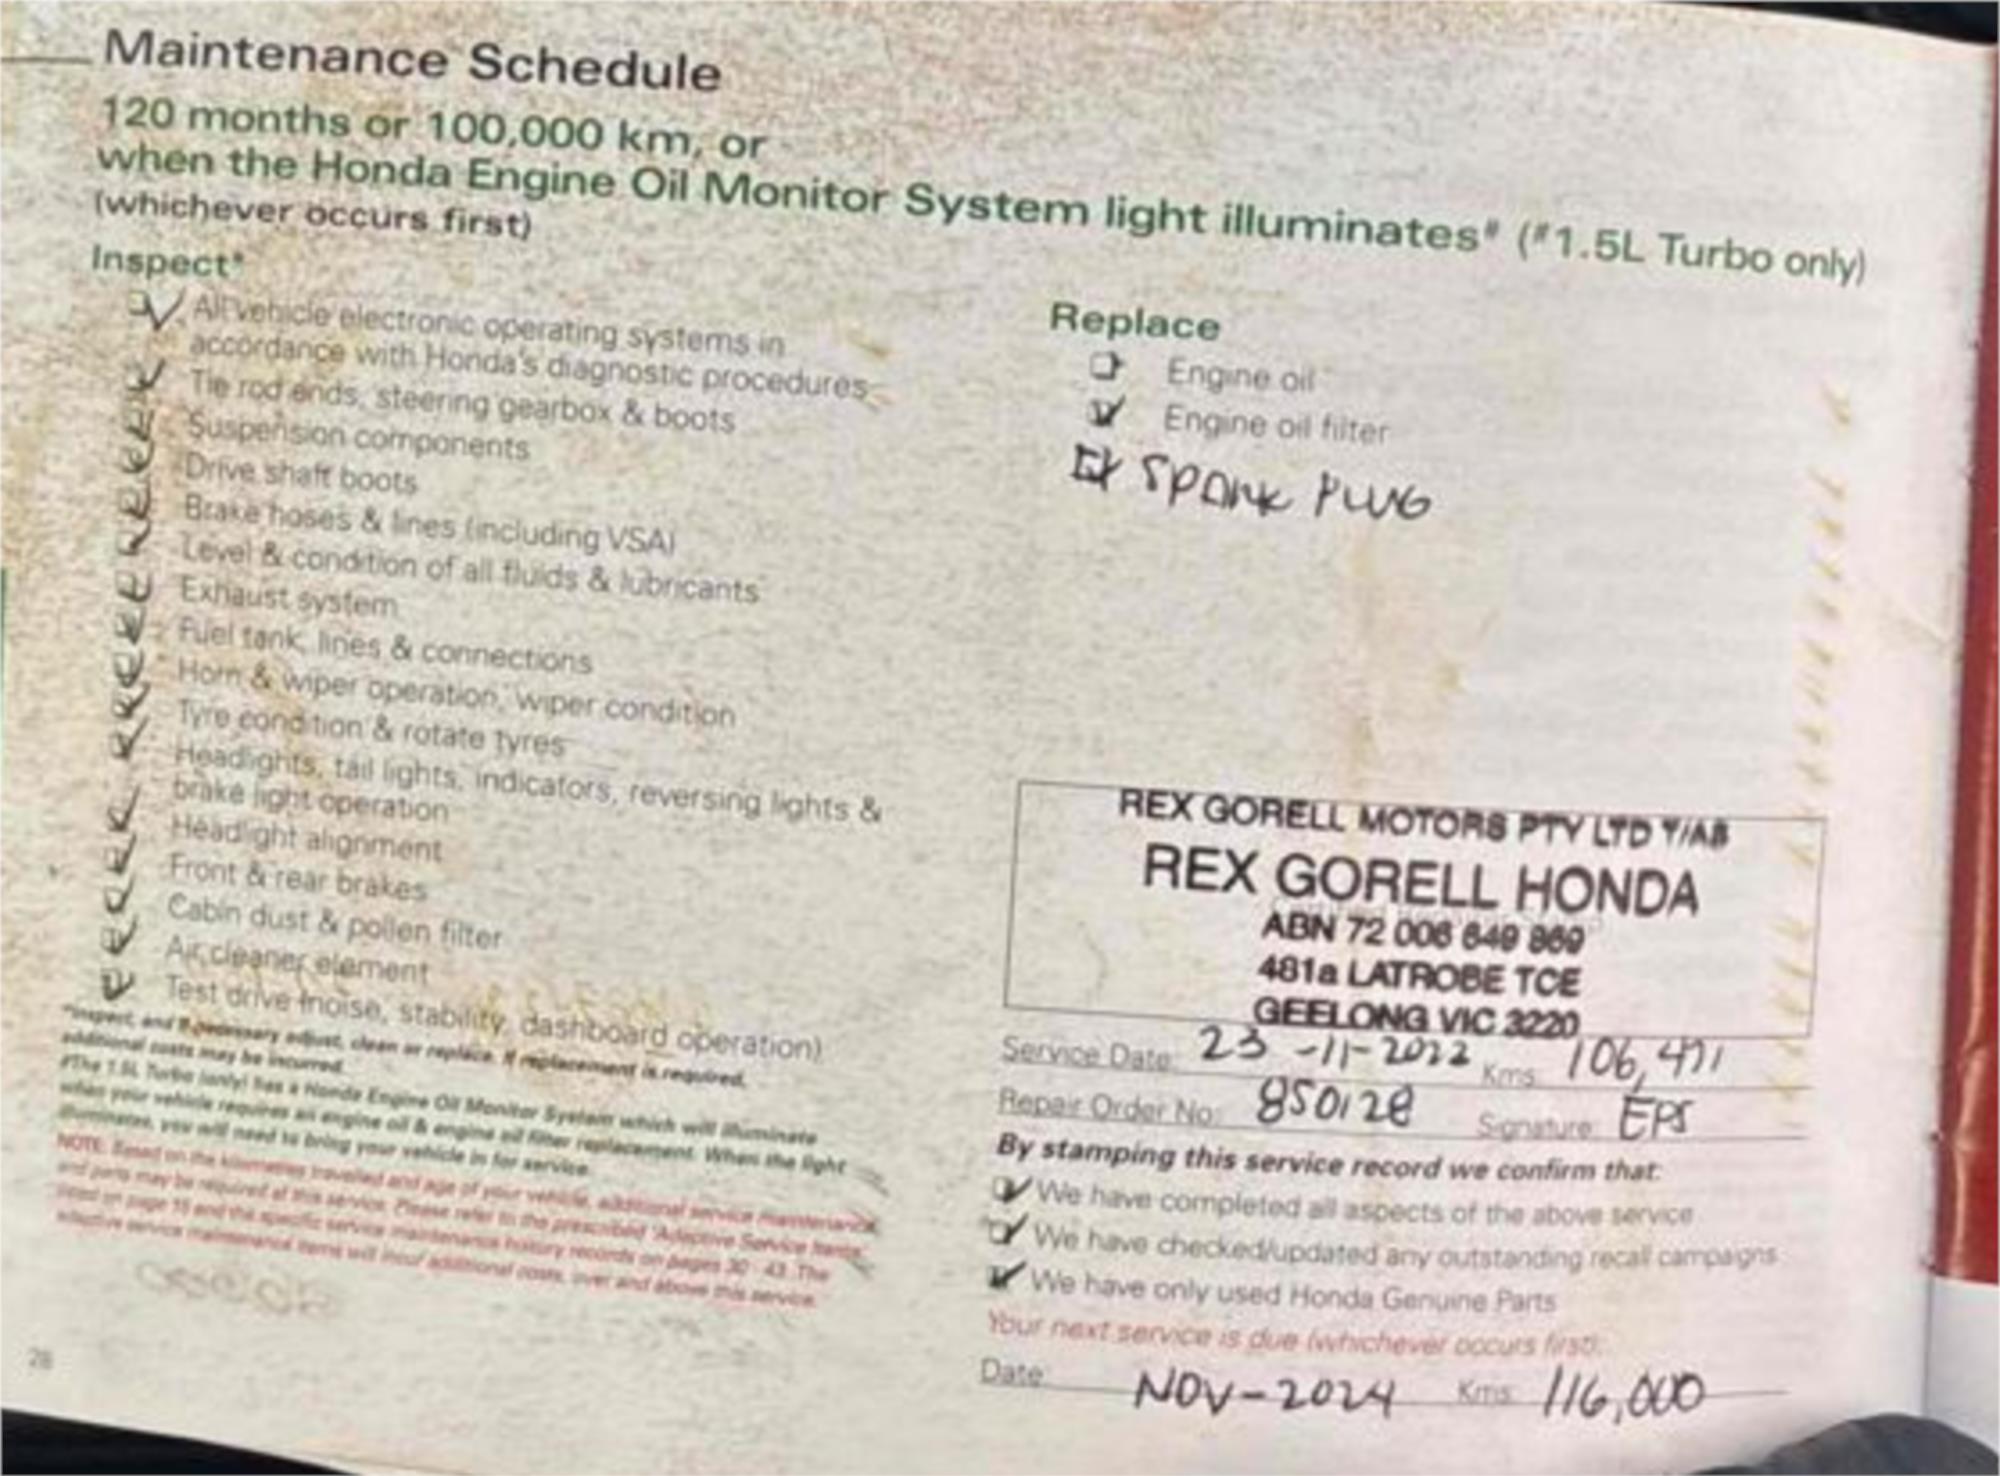 Maintenance Schedule
120 months or 100,000 km, or
when the Honda Engine Oil Monitor System light illuminates# (#1.5L Turbo only)
(whichever occurs first)
Inspect*
All vehicle electronic operating systems in
accordance with Honda's diagnostic procedures
Tie rod ends, steering gearbox & boots
Suspension components
Drive shaft boots
Brake hoses & lines (including VSA)
Level & condition of all fluids & lubricants
Exhaust system
Fuel tank, lines & connections
Horn & wiper operation, wiper condition
Tyre condition & rotate tyres
Headlights, tail lights, indicators, reversing lights &
brake light operation
Headlight alignment
Front & rear brakes
Cabin dust & pollen filter
Air cleaner element
Test drive (noise, stability, dashboard operation)
*Inspect, and if necessary adjust, clean or replace. If replacement is required,
additional costs may be incurred.
#The 1.5L Turbo (only) has a Honda Engine Oil Monitor System which will illuminate
when your vehicle requires an engine oil & engine oil filter replacement. When the light
illuminates, you will need to bring your vehicle in for service.
NOTE: Based on the kilometres travelled and age of your vehicle, additional service maintenance
and parts may be required at this service. Please refer to the prescribed 'Adaptive Service Items'
listed on page 15 and the specific service maintenance history records on pages 30 - 43. The
adaptive service maintenance items will incur additional costs, over and above this service.
28
Replace
Engine oil
Engine oil filter
SPARK PLUG
REX GORELL MOTORS PTY LTD T/AS
REX GORELL HONDA
ABN 72 006 649 869
481a LATROBE TCE
GEELONG VIC 3220
Service Date: 23-11-2022 Kms: 106,471
Repair Order No: 850128 Signature: EPS
By stamping this service record we confirm that:
We have completed all aspects of the above service
We have checked/updated any outstanding recall campaigns
We have only used Honda Genuine Parts
Your next service is due (whichever occurs first):
Date: NOV-2024 Kms: 116,000